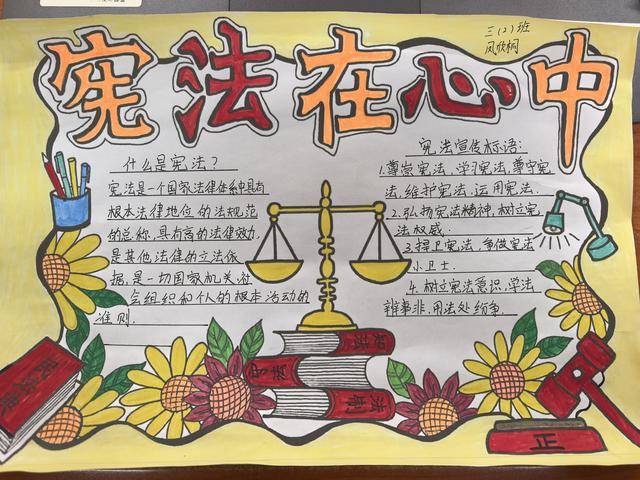 三(2)班
凤欣桐
宪法在心中
什么是宪法?
宪法是一个国家法律体系中具有
根本法律地位的法规范
的总称,具有高的法律效力,
是其他法律的立法依
据,是一切国家机关社
会组织和个人的根本活动的
准则.
宪法宣传标语:
1.尊崇宪法、学习宪法、遵守宪
法、维护宪法、运用宪法.
2.弘扬宪法精神,树立宪
法权威.
3.捍卫宪法、争做宪法
小卫士.
4.树立宪法意识,学法
辨事非,用法处纷争.
法制
正